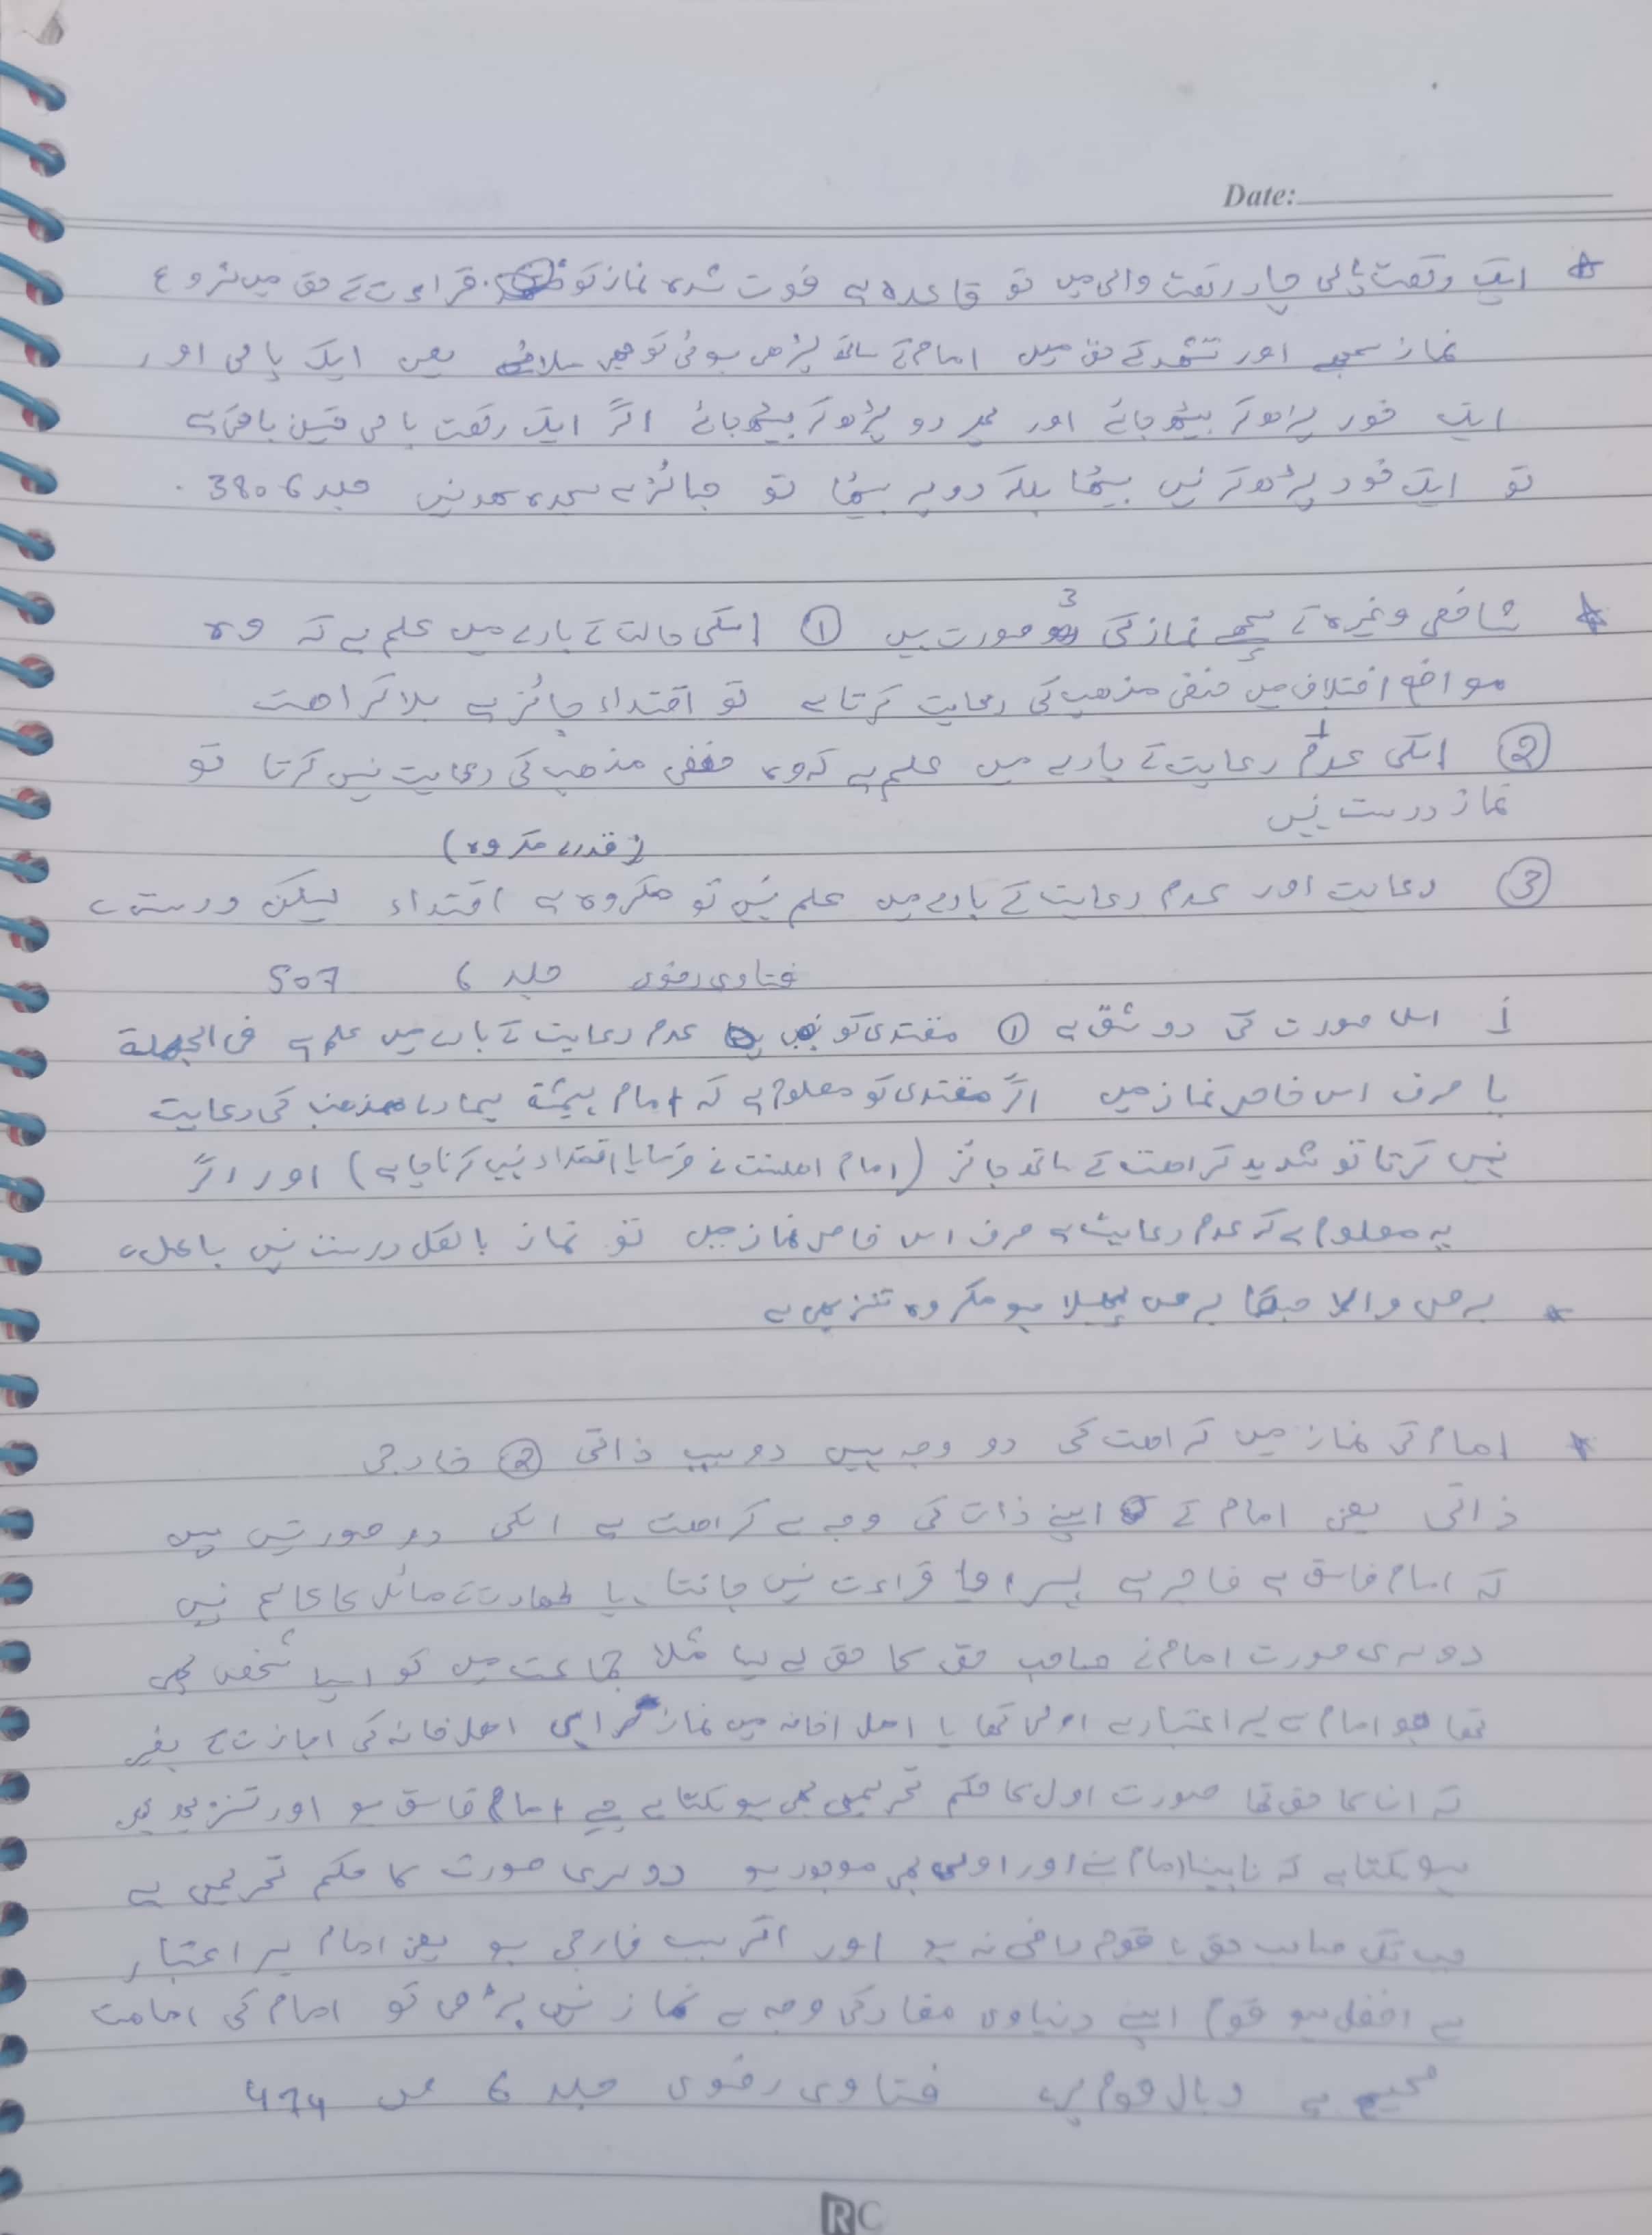 Date:
* ایک رکعت پائی چار رکعت والی میں تو قاعدہ ہے فوت شدہ نماز کو قراءت کے حق میں شروع
نماز سمجھے اور تشہد کے حق میں امام کے ساتھ پڑھی ہوئی کو بھی ملائے یعنی ایک پائی اور
ایک خود پڑھ کر بیٹھ جائے اور پھر دو پڑھ کر بیٹھ جائے اگر ایک رکعت پائی تین باقی ہے
تو ایک خود پڑھ کر نہیں بیٹھا بلکہ دو پہ بیٹھا تو جائز ہے سجدہ سہو نہیں جلد 6 380
* شافعی وغیرہ کے پیچھے نماز کی 3 صورت ہیں ① اسکی حالت کے بارے میں علم ہے کہ وہ
مواضع اختلاف میں حنفی مذھب کی رعایت کرتا ہے تو اقتداء جائز ہے بلا کراھت
② اسکی عدم رعایت کے بارے میں علم ہے کہ وہ حنفی مذھب کی رعایت نہیں کرتا تو
نماز درست نہیں
(قدرے مکروہ)
③ رعایت اور عدم رعایت کے بارے میں علم نہیں تو مکروہ ہے اقتداء لیکن درست ہے
فتاوی رضوی جلد 6 507
اس صورت کی دو شق ہے ① مقتدی کو عدم رعایت کے بارے میں علم ہے فی الجملة
یا صرف اس خاص نماز میں اگر مقتدی کو معلوم ہے کہ امام ہمیشہ ہمارے مذھب کی رعایت
نہیں کرتا تو شدید کراھت کے ساتھ جائز (امام اھلسنت نے فرمایا اقتداء نہیں کرنا چاہے) اور اگر
یہ معلوم ہے کہ عدم رعایت ہے صرف اس خاص نماز میں تو نماز بالکل درست نہیں باطل ہے
* برص والا جسکا برص پھیلا ہو مکروہ تنزیہی ہے
* امام کی نماز میں کراھت کی دو وجہ ہیں دو سبب ذاتی ② خارجی
ذاتی یعنی امام کے اپنے ذات کی وجہ سے کراھت ہے اسکی دو صورتیں ہیں
کہ امام فاسق ہے فاجر ہے قراءت نہیں جانتا یا طھارت کے مسائل کا عالم نہیں
دوسری صورت امام نے صاحب حق کا حق لے لیا مثلا جماعت میں کو ایسا شخص بھی
تھا جو امام سے ہر اعتبار سے اولی تھا یا اھل خانہ میں نماز کرایی اھل خانہ کی اجازت کے بغیر
کہ ان کا حق تھا صورت اول کا حکم تحریمی بھی ہو سکتا ہے جیسے امام فاسق ہو اور تنزیہی بھی
ہو سکتا ہے کہ نابینا امام بنے اور اولی بھی موجود ہو دوسری صورت کا حکم تحریمی ہے
جب تک صاحب حق یا قوم راضی نہ ہو اور اگر سبب خارجی ہو یعنی امام ہر اعتبار
سے افضل ہو قوم اپنے دنیاوی مفاد کی وجہ سے نماز نہیں پڑھی تو امام کی امامت
صحیح ہے وبال قوم پر ہے فتاوی رضوی جلد 6 ص 474
RC